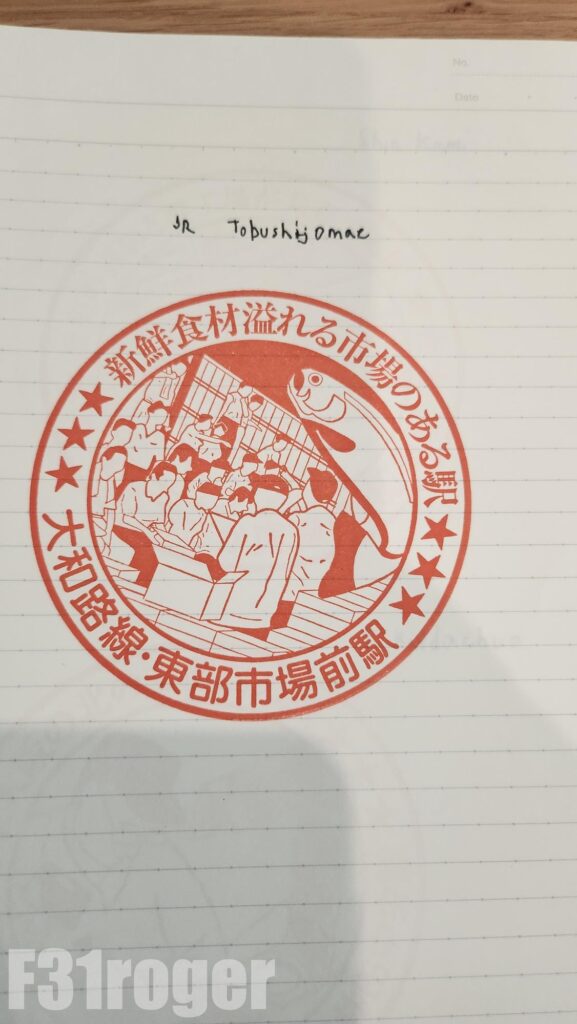 No.
Date
JR Tobushijomae
新鮮食材溢れる市場のある駅
大和路線・東部市場前駅
F31roger